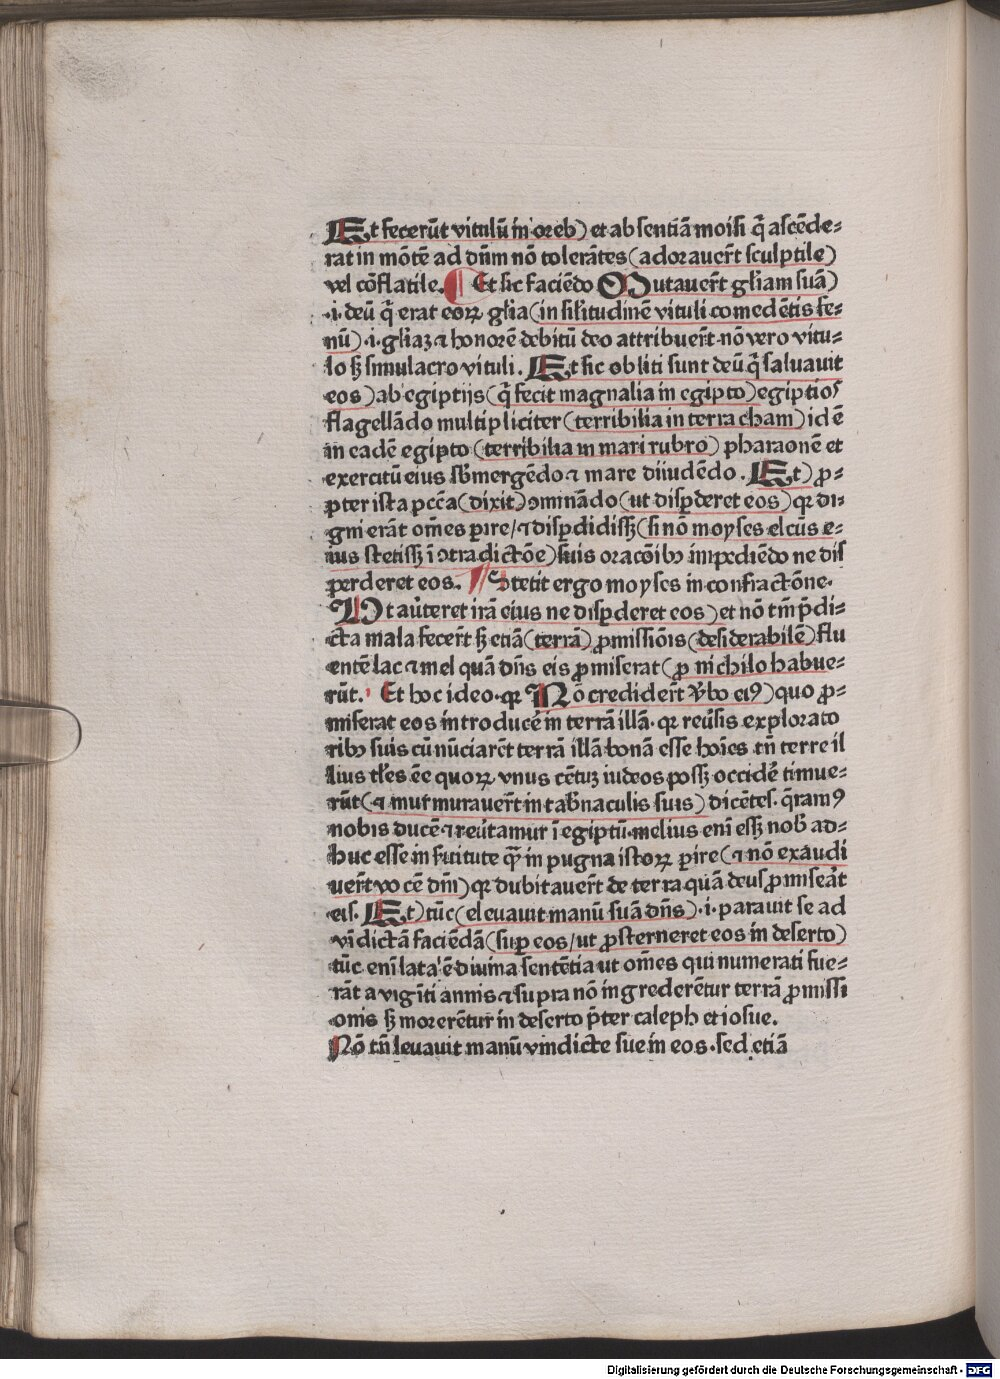 Et fecerūt vitulū in oreb) et absentiā moisi q̄ ascēde=
rat in mōtē ad dn̄m nō tolerātes (adorauer̄t sculptile)
vel cōflatile. ¶ Et sic faciēdo Mutauer̄t gl̄iam suā)
.i. deū q̄ erat eoꝝ gl̄ia (in sil̄itudinē vituli comedētis fe=
nū) .i. gl̄iaꝫ ⁊ honorē debitū deo attribuer̄t nō vero vitu=
lo sꝫ simulacro vituli. Et sic obliti sunt deū q̄ saluauit
eos) ab egiptijs (q̄ fecit magnalia in egipto) egiptios
flagellādo multipliciter (terribilia in terra cham) id ē
in eadē egipto (terribilia in mari rubro) pharaonē et
exercitū eius sb̄mergēdo ⁊ mare diuidēdo. Et) ꝓ=
pter ista pcc̄a (dixit) ꝯminādo (ut disꝑderet eos) qꝛ di=
gni erāt om̄es ꝑire / ⁊ disꝑdidissꝫ (si nō moyses elcūs e=
ius stetissꝫ ī ꝯtradictōe) suis oracōibꝰ impediēdo ne dis
perderet eos. ¶ Stetit ergo moyses in confractōne.
Ut aūteret irā eius ne disꝑderet eos) et nō tm̄ p̄di=
cta mala fecer̄t sꝫ etiā (terrā) ꝓmissiōnis (desiderabilē) flu
entē lac ⁊ mel quā dn̄s eis ꝓmiserat (ꝓ nichilo habue=
rūt. Et hoc ideo. qꝛ Nō crediderr̄t v̄bo eiꝰ) quo ꝓ=
miserat eos introducē in terrā illā. qꝛ reūsis explorato
ribꝰ suis cū nūciarēt terrā illā bonā esse hoīes tn̄ terre il
lius tl̄es ēe quoꝝ vnus cētuꝫ iudeos possꝫ occidē timue=
rūt (⁊ murmurauer̄t in tab̄naculis suis) dicētes. q̄ramꝰ
nobis ducē ⁊ reūtamur ī egiptū. melius eni essꝫ nob̄ ad=
huc esse in s̄uitute qͣꝫ in pugna istoꝝ ꝑire (⁊ nō exaudi
uer̄t vocē dn̄i) qꝛ dubitauer̄t de terra quā deus ꝓmiserāt
eis. Et) tūc (eleuauit manū suā dn̄s) .i. parauit se ad
vīdictā faciēdā (suꝑ eos / ut ꝓsterneret eos in deserto)
tūc eni lata ē diuina sentētia ut om̄es qui numerati fue=
rāt a vigīti annis ⁊ supra nō ingrederētur terrā ꝓmissi
onis sꝫ morerētur in deserto p̄ter caleph et iosue.
Nō tn̄ leuauit manū vindicte sue in eos. sed etiā
Digitalisierung gefördert durch die Deutsche Forschungsgemeinschaft - DFG